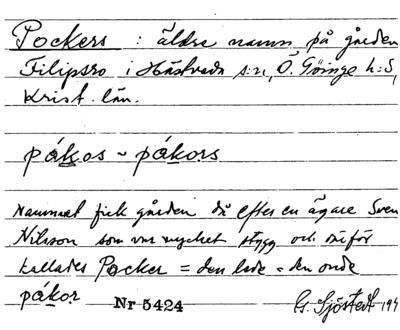 Pockers : äldre namn på gården
Filipsro i Hästveda s:n, Ö. Göinge h:d,
Krist. län.
påkos ~ påkors
Namnet fick gården då efter en ägare Sven
Nilsson som var mycket stygg och därför
kallades Pocker = den lede = den onde
påkor Nr 5424 G. Sjöstedt 194